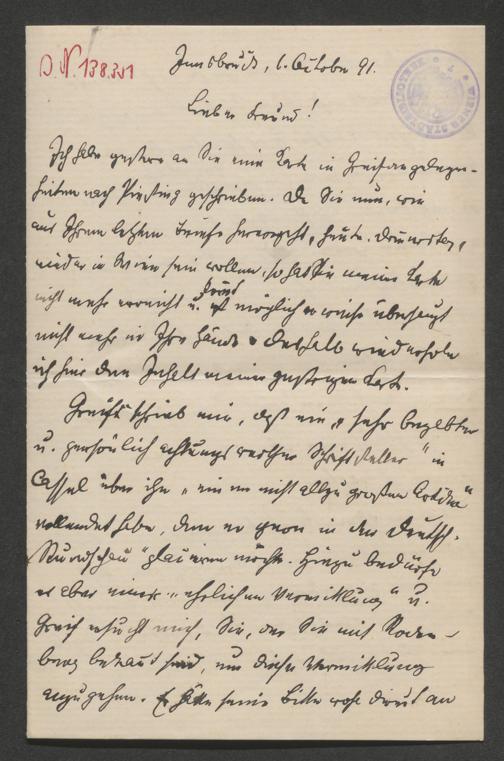 J. N. 138.351
Innsbruck, 1. October 91.
Lieber Freund!
Ich habe gestern an Sie eine Karte in Greifangelegen-
heiten nach Piesting geschrieben. Da Sie nun, wie
aus Ihrem letzten Briefe hervorgeht, heute, Donnerstag,
wieder in Wien sein wollen, so hat Sie meine Karte
nicht mehr erreicht u. kommt möglicherweise überhaupt
nicht mehr in Ihre Hände. Deshalb wiederhole
ich hier den Inhalt meiner gestrigen Karte.
Greif schrieb mir, daß ein „sehr begabter
u. persönlich achtungswerther Schriftsteller" in
Cassel über ihn „einen nicht allzu großen Artikel"
vollendet habe, den er gern in der Deutsch.
Rundschau" placieren möchte. Hiezu bedürfe
er aber einer „ehrlichen Vermittlung" u.
Greif ersucht mich, Sie, der Sie mit Roden-
berg bekannt sind, um diese Vermittlung
anzugehen. Er hätte seine Bitte wohl direct an